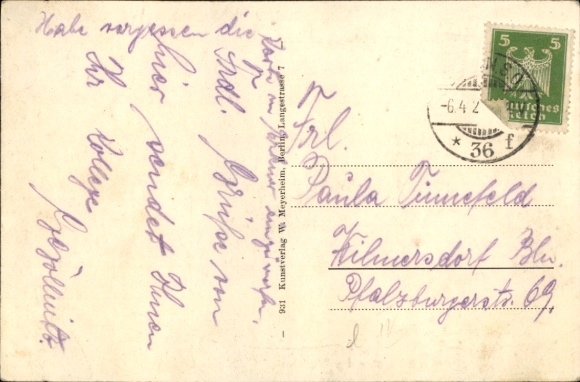 Habe vergessen die
Karte in
Frdl. Grüße von
hier sendet Ihnen
Ihr Kollege
931 Kunstverlag W. Meyerheim, Berlin, Langestrasse 7
5 5
Deutsches
Reich
-6.4.2
* 36 f
Frl.
Paula Tinnefeld
Wilmersdorf Bln.
Pfalzburgerstr. 69.